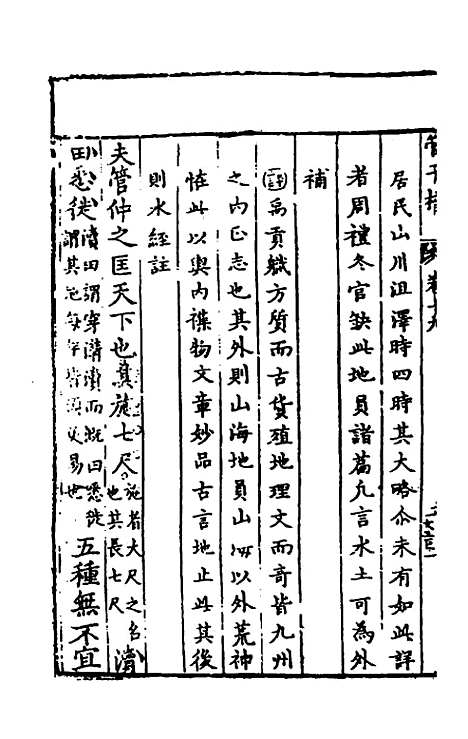 居民山川沮澤時四時其大略亦未有如此詳
者周禮冬官缺此地員諸篇凡言水土可為外
補
評禹貢職方質而古貨殖地理文而奇皆九州
之内正志也其外則山海地員山海以外荒神
怪此以輿内襍物文章妙品古言地止此其後
則水經註
夫管仲之匡天下也其施七尺施者大尺之名也其長七尺瀆
田悉徙瀆田謂穿溝瀆而溉田悉徙謂其地每年皆須更易也五種無不宜